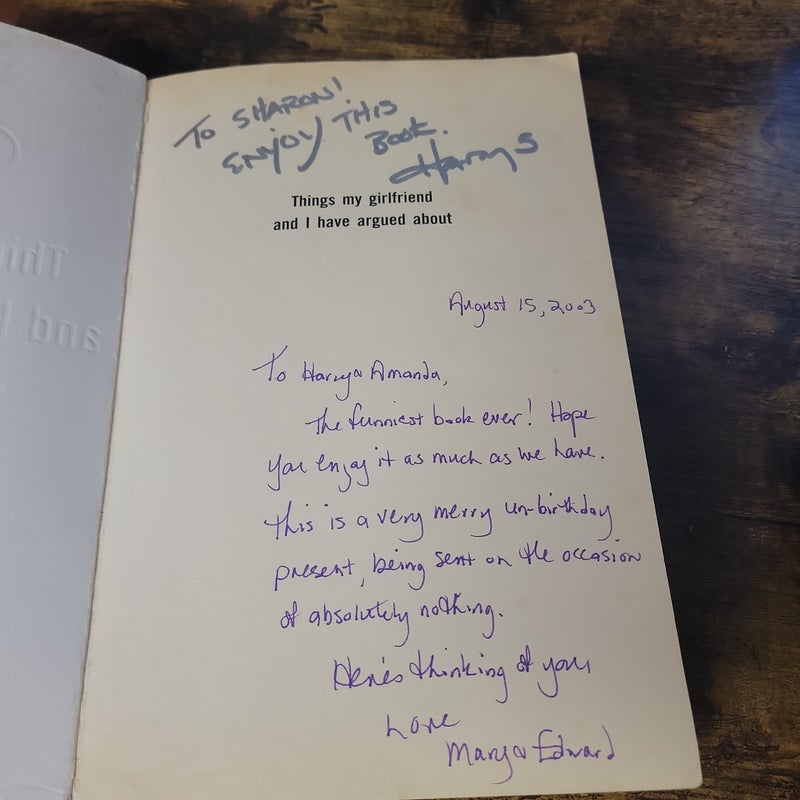 TO SHARON!
ENJOY THIS
BOOK.
Harry S
Things my girlfriend
and I have argued about
August 15, 2003
To Harry & Amanda,
The funniest book ever! Hope
you enjoy it as much as we have.
This is a very merry un-birthday
present, being sent on the occasion
of absolutely nothing.
Here's thinking of you
Love
Mary & Edward